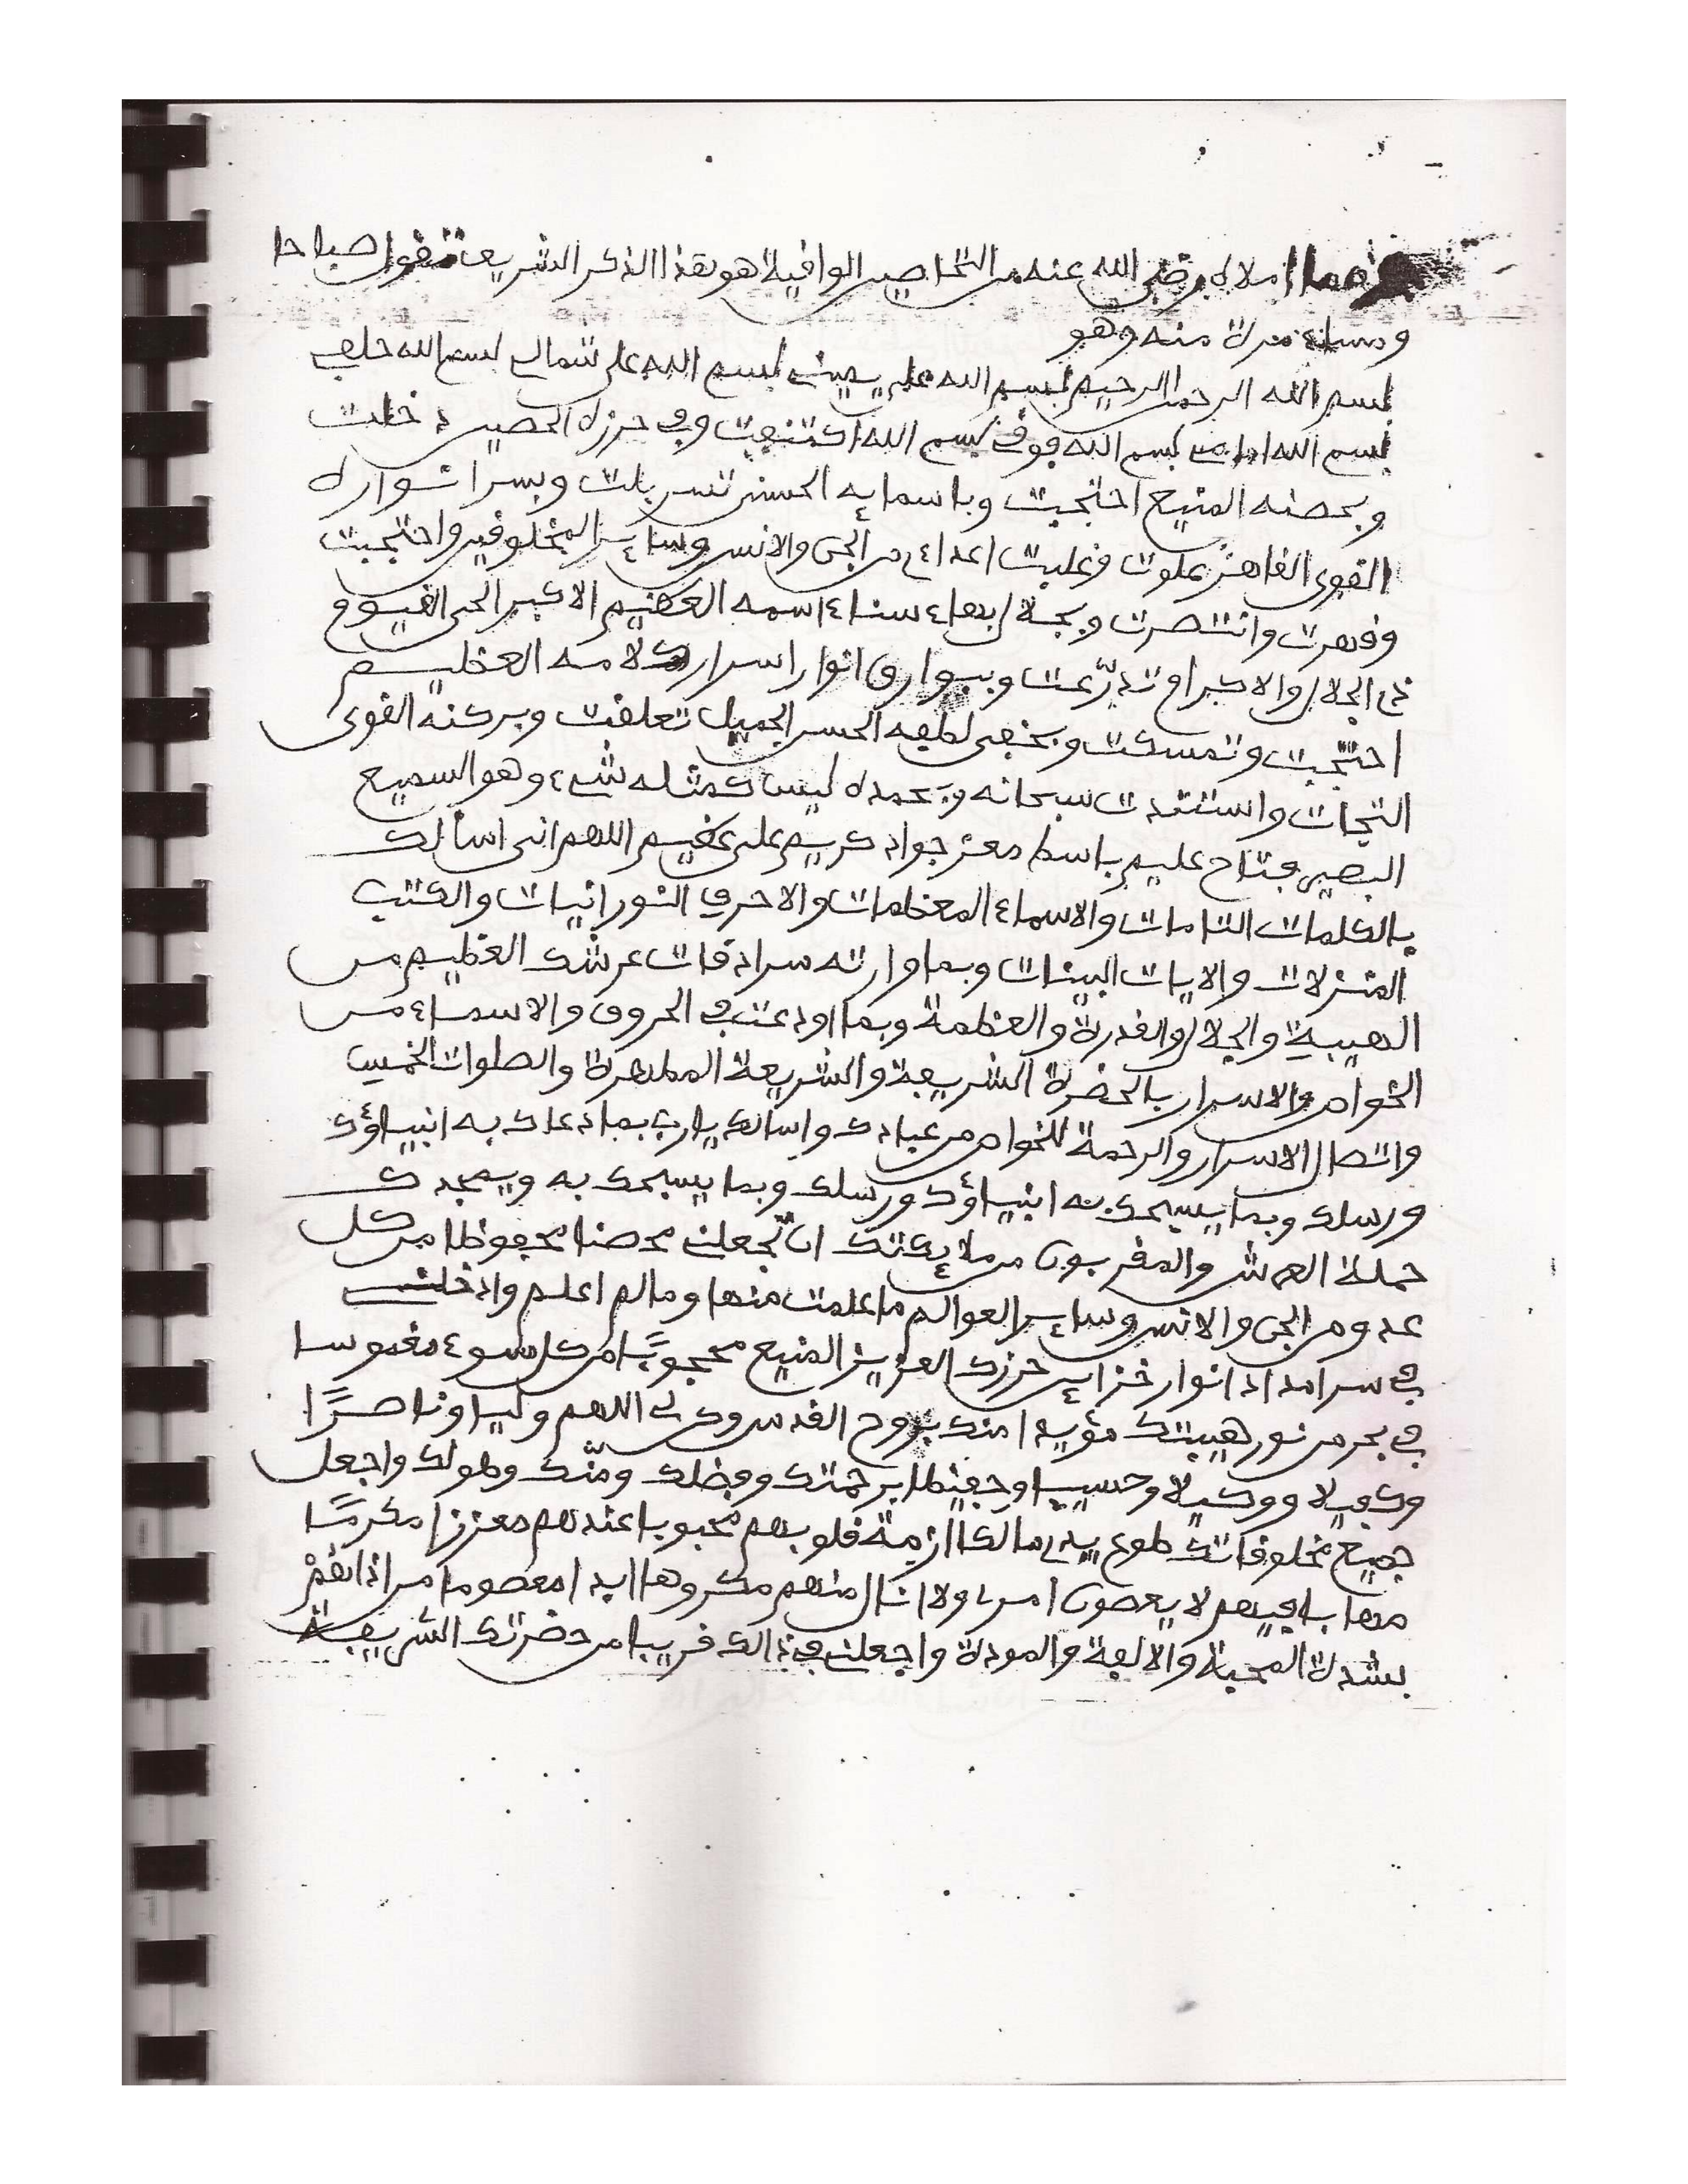 ومما املاه رضي الله عنه من التحاصين الوافية هو هذا الذكر الشريف تقول صباحا
ومساء مرة منه وهو
بسم الله الرحمن الرحيم بسم الله على يميني بسم الله على شمالي بسم الله خلفي
بسم الله امامي بسم الله فوقي بسم الله اكتنفت وفي حرزه الحصين دخلت
وبحصنه المنيع احتجبت وباسمايه الحسنى تسربلت وبسر انواره
القوي القاهر علوت وغلبت اعداءي من الجن والانس وساير المخلوقين واحتجبت
وقهرت وانتصرت وبجلال بهاء سناء اسمه العظيم الاكبر الحي القيوم
ذي الجلال والاكرام تدرّعت وببوارق انوار اسرار كلامه العظيم
احتجبت وتمسكت وبخفي لطفه الحسن الجميل تعلقت وبركنه القوى
التجات واستندت سبحانه وبحمده ليس كمثله شيء وهو السميع
البصير فتاح عليم باسط معز جواد كريم على عظيم اللهم اني اسألك
بالكلمات التامات والاسماء المعظمات والاحرف النورانيات والكتب
المنزلات والايات البينات وبما وارته سرادقات عرشك العظيم من
الهيبة والجلال والقدرة والعظمة وبما اودعت في الحروف والاسماء من
الخواص والاسرار بالحضرة الشريفة والشريعة المطهرة والصلوات الخمس
واتصال الاسرار والرحمة للخواص من عبادك واسالك يا رب بما دعاك به انبياؤك
ورسلك وبما يسبحك به انبياؤك ورسلك وبما يسبحك به ويمجدك
حملة العرش والمقربون من ملايكتك ان تجعلني محصنا محفوظا من كل
عدو من الجن والانس وساير العوالم ما علمت منها وما لم اعلم وادخلني
في سر امداد انوار خزاين حرزك العزيز المنيع محجوبًا من كل سوء مغموسا
في بحر من نور هيبتك مؤيدا منك بروح القدس وكن لي اللهم وليا وناصرًا
وكفيلا ووكيلا وحسيبا وحفيظا برحمتك وفضلك ومنّك وطولك واجعل
جميع مخلوقاتك طوع يدي مالكا ازمة قلوبهم محبوبا عندهم معززا مكرمًا
مهابا فيهم لا يعصون امري ولا انال منهم مكروها ابدا معصوما من اذايتهمْ
بشدة المحبة والالفة والمودة واجعلني في ذالك قريبا من حضرتك الشريفة